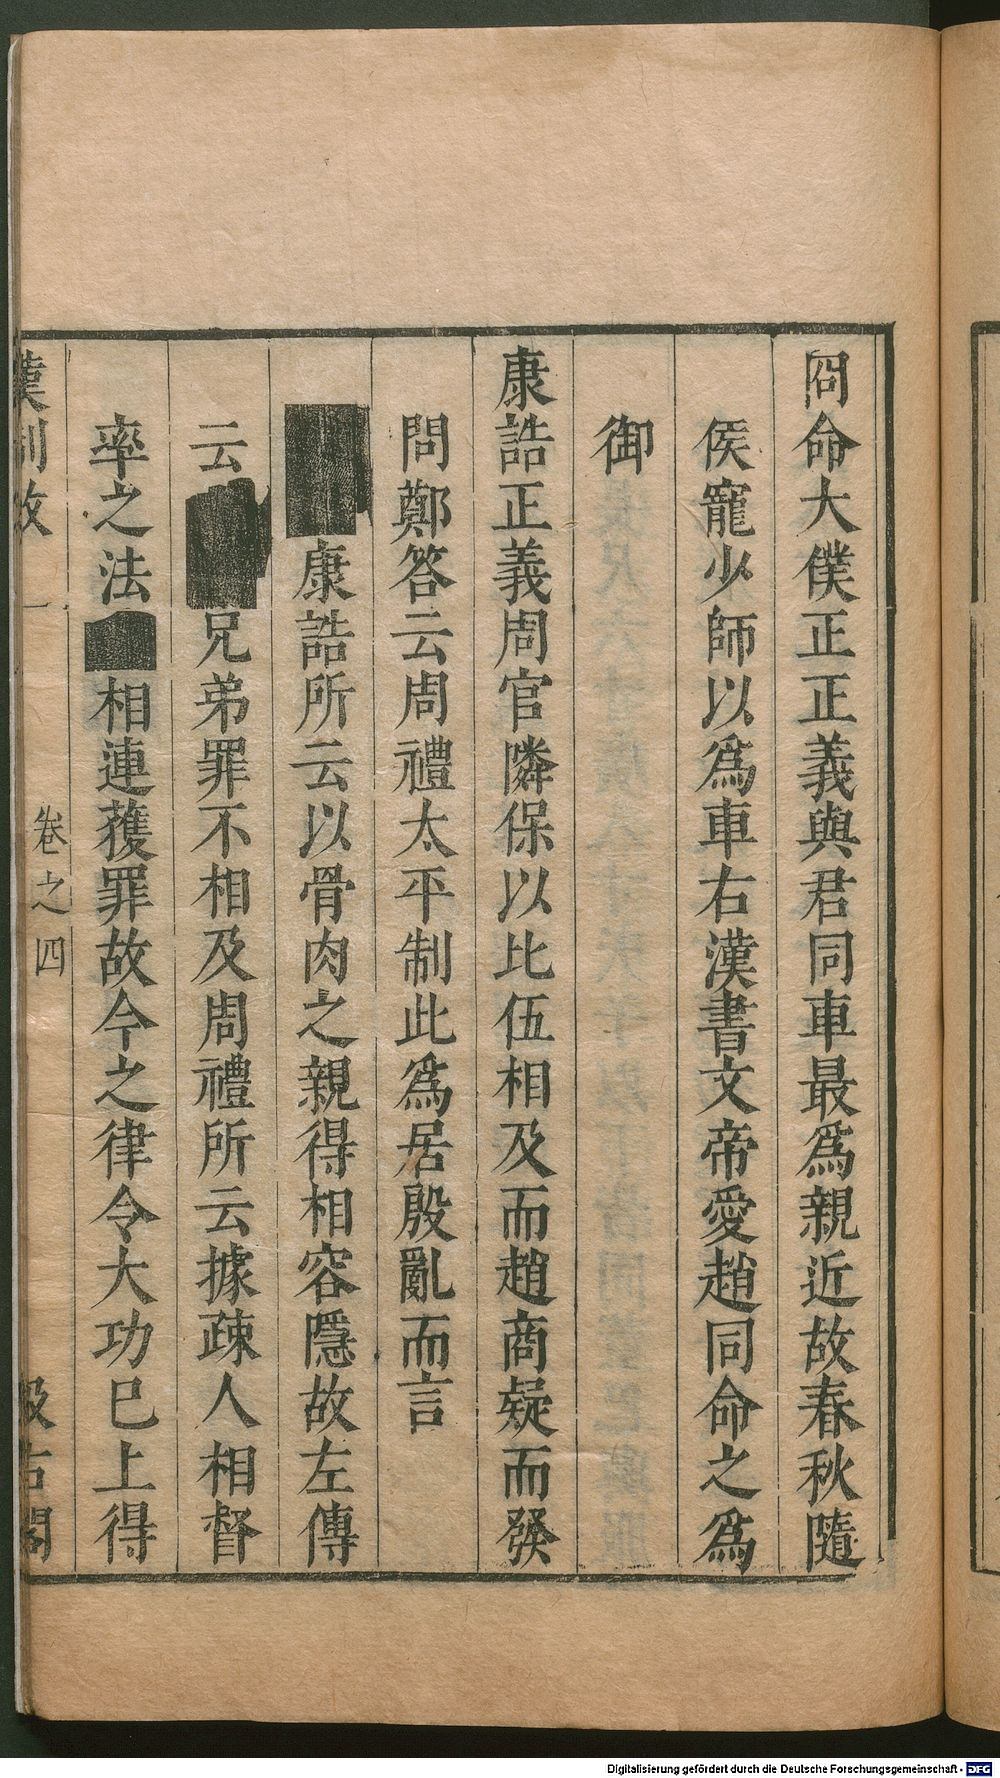 冏命大僕正正義與君同車最爲親近故春秋隨
侯寵少師以爲車右漢書文帝愛趙同命之爲
御
康誥正義周官隣保以比伍相及而趙商疑而發
問鄭答云周禮太平制此爲居殷亂而言
康誥所云以骨肉之親得相容隱故左傳
云兄弟罪不相及周禮所云據疎人相督
率之法相連獲罪故今之律令大功巳上得
漢制攷
卷之四
汲古閣
Digitalisierung gefördert durch die Deutsche Forschungsgemeinschaft - DFG